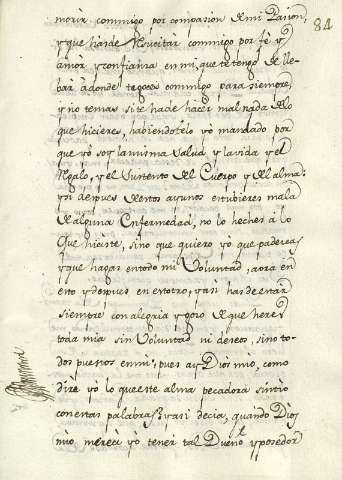 84
morir commigo por compasion de mi Pasion,
y que has de Resucitar commigo por fè y
amor y confianza en mi, que te tengo de lle-
bar à donde tegoces commigo para siempre,
y no temas si te hade hacer mal nada de lo
que hicieres, habiendotelo yò mandado por
que yò soy la misma salud y la vida y el
Regalo, y el sustento del Cuerpo y del alma:
y si despues destos ayunos estubieres mala
de alguna Enfermedad, no lo heches à lo
que hiciste, sino que quiero yò que padezcas
y que hagas en todo mi Voluntad, aora en
esto y despues en estotro, y asi has de estàr
siempre con alegria y gozo de que heres
toda mia sin Voluntad ni deseos, sino to-
dos puestos en mi: pues ay Dios mio, como
dirè yò lo que este alma pecadora sintio
con estas palabras? y asi decia, quando Dios
mio merecì yò tener tal Dueño y Posedor